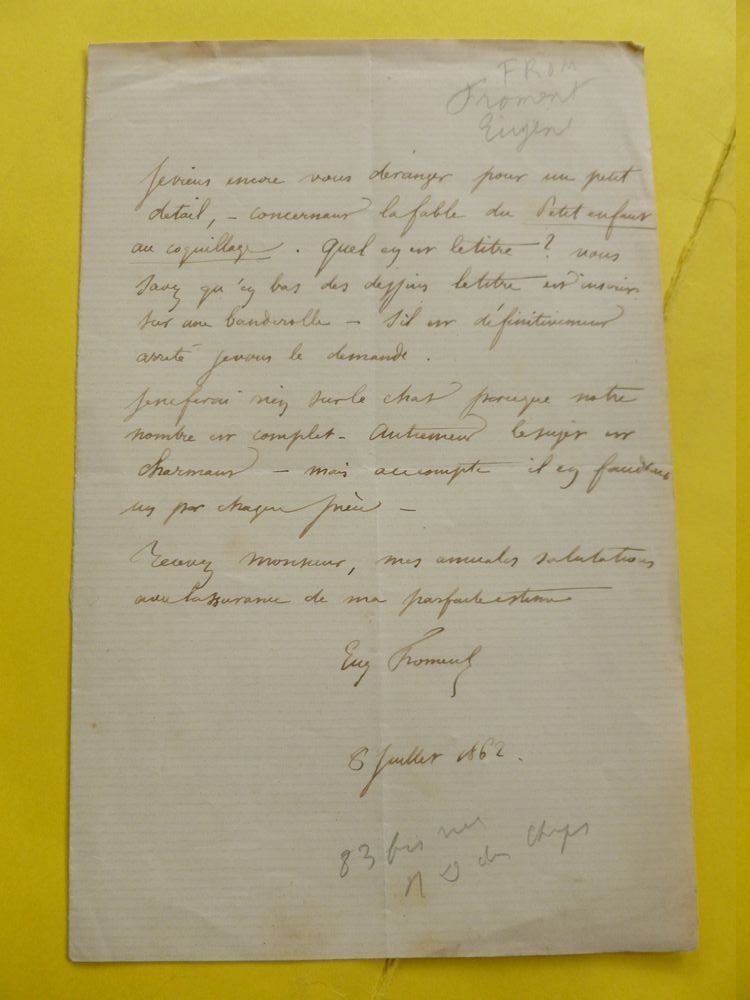 FROM
Froment
Eugène
Je viens encore vous déranger pour un petit
detail, – concernant la fable du Petit enfant
au coquillage. Quel en est le titre? vous
savez qu'en bas des dessins le titre est inscrit
sur une banderolle – s'il est définitivement
arreté je vous le demande.
Je ne ferai rien sur le chat puisque notre
nombre est complet – Autrement le sujet est
charmant – mais au compte il en faudrait
un par chaque
Recevez monsieur, mes amicales salutations
avec l'assurance de ma parfaite estime
Eug Froment
8 Juillet 1862.
83 bis rue
N D des Champs